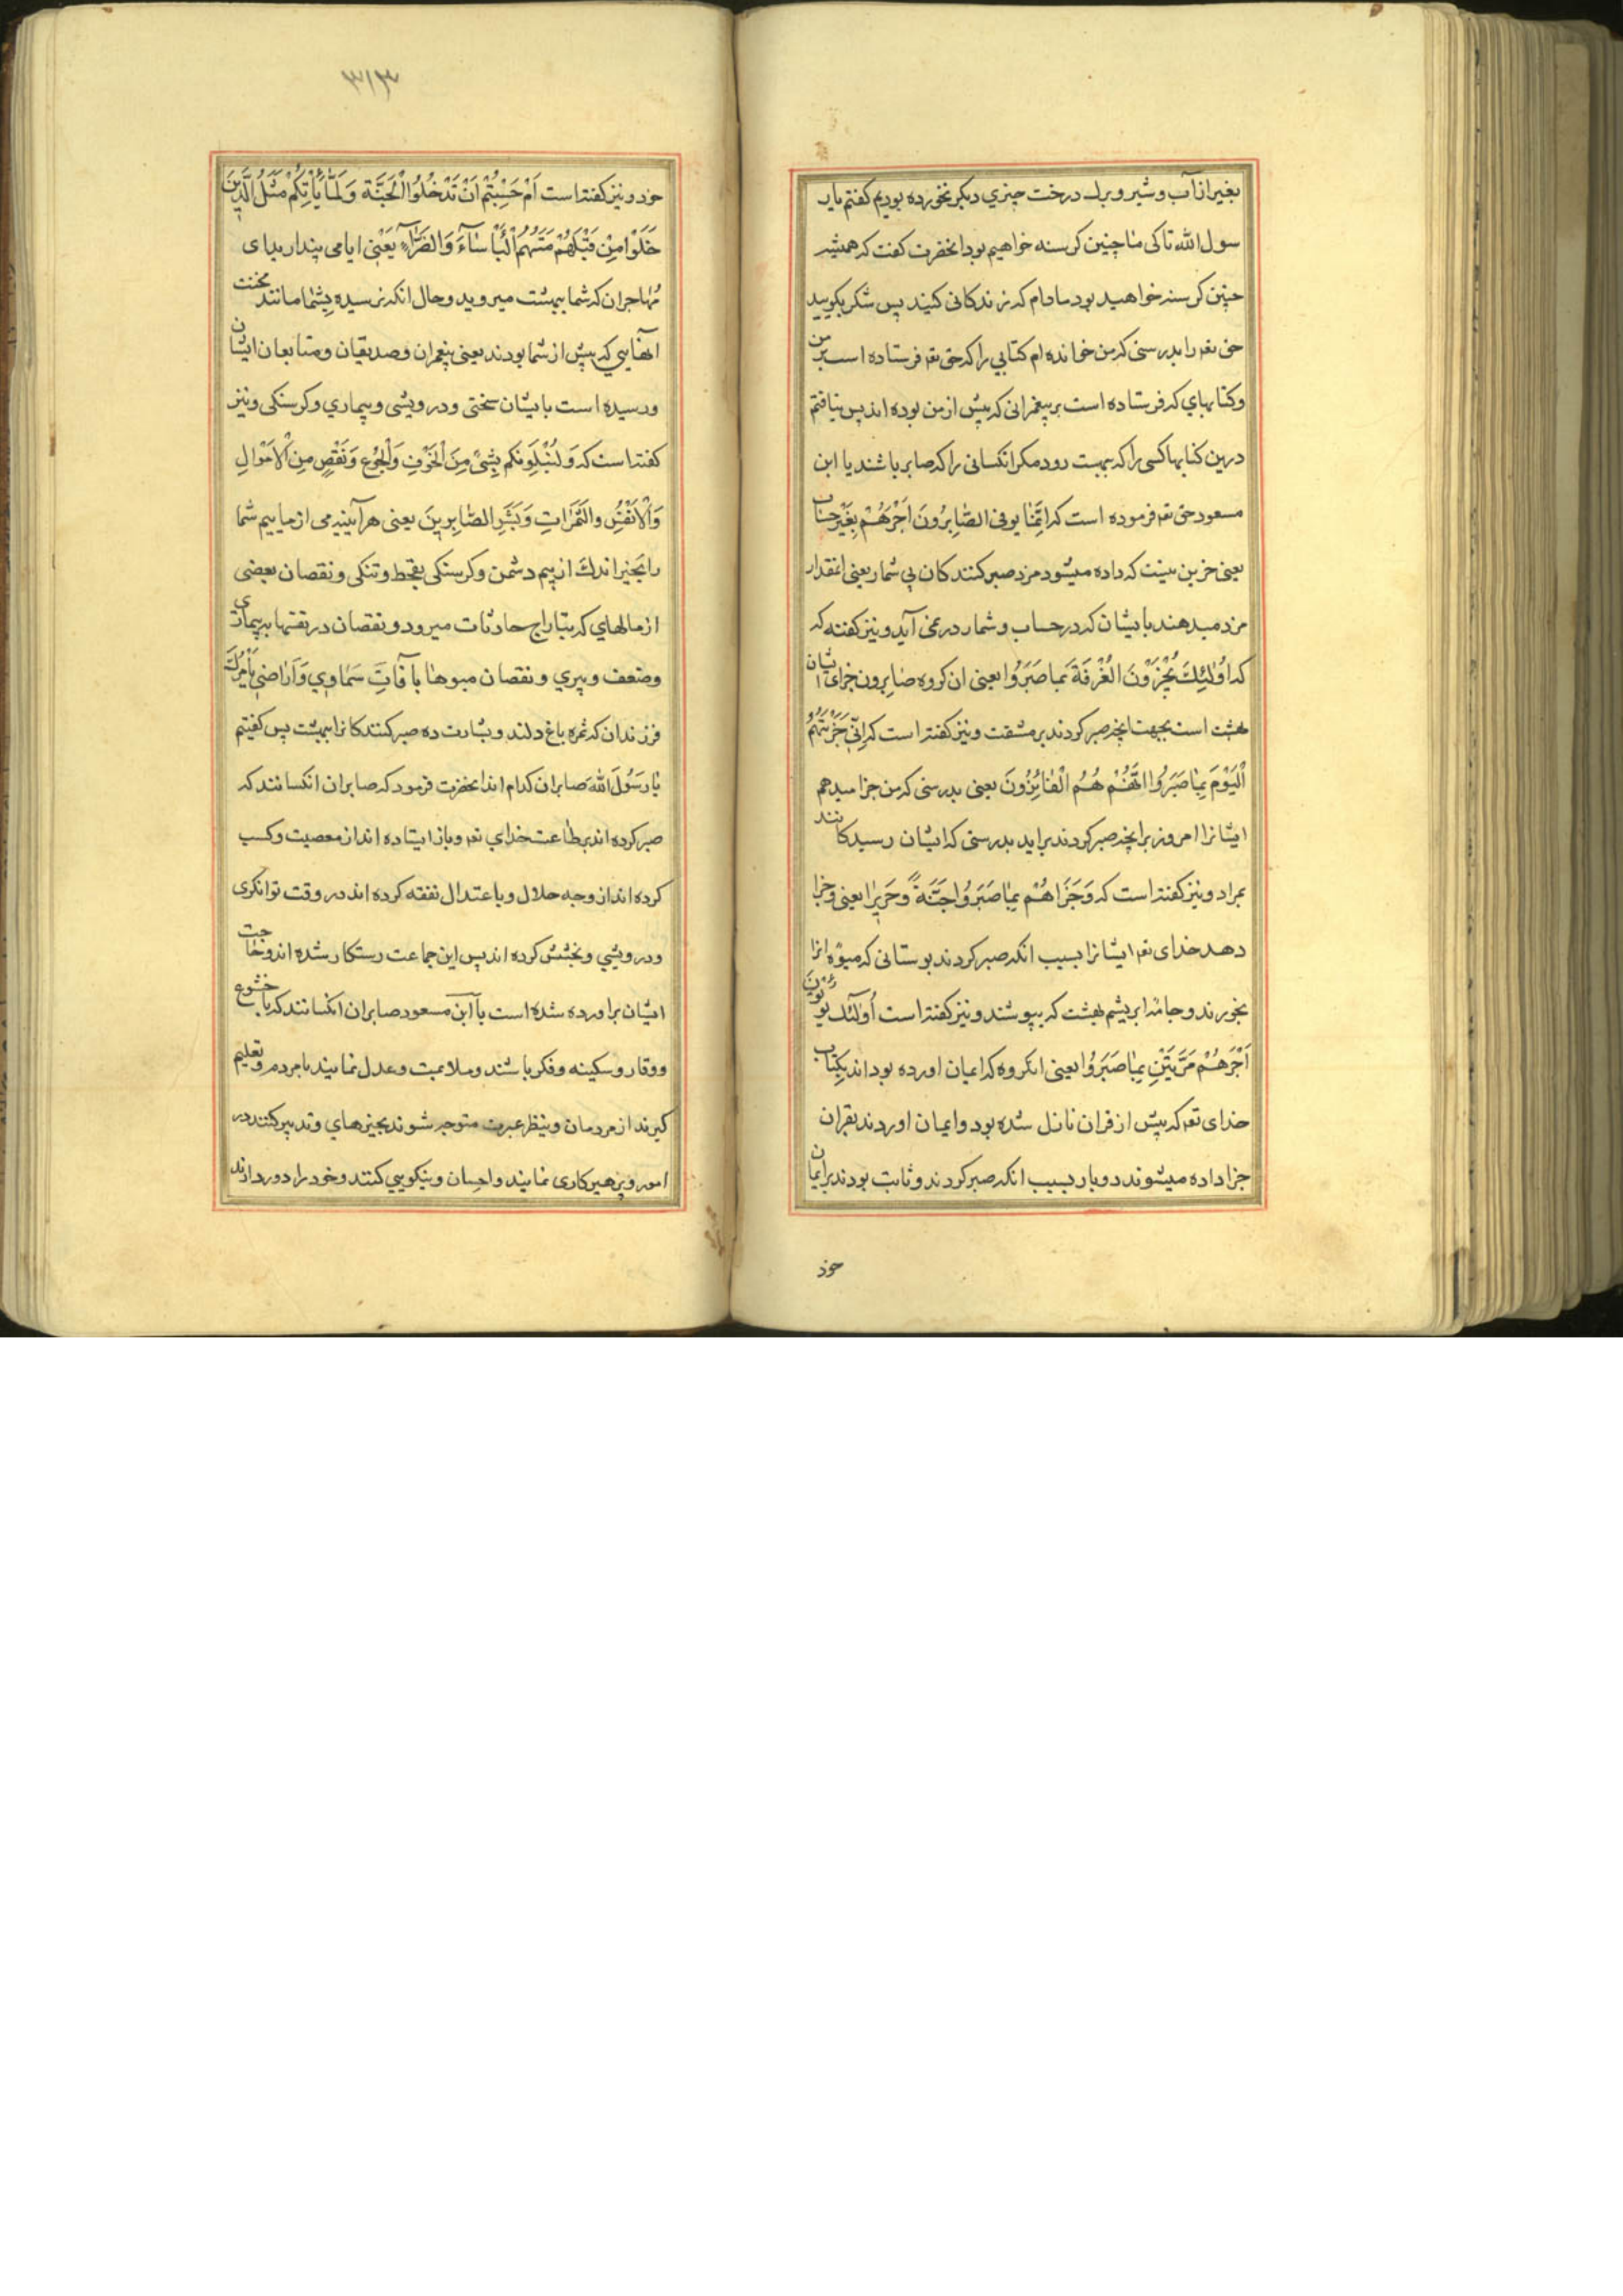 بغیر از آب و شیر و برك درخت چیزي دیکر نخورده بودیم کفتم یار
سول الله تا کی ما چنین کرسنه خواهیم بود انحضرت کفت که همیشه
چنین کرسنه خواهید بود مادام که زندکانی کنید پس شکر بکویید
حق تعم را بدرستی که من خوانده ام کتابي را که حق تعم فرستاده است بر من
و کتابهاي که فرستاده است بر پیغمرانی که پیش از من بوده اند پس نیافتم
درین کتابها کسی را که ببهشت رود مکر انکسانی را که صابر باشند یا ابن
مسعود حق تعم فرموده است که اِنَّمٰا یوفی الصّٰابِرُونَ اَجْرَهُمْ بِغَیْرِ حِسٰابٍ
یعنی جز این نیست که داده میشود مزد صبر کنندکان بی شمار یعنی انقدار
مزد میدهند بایشان که در حساب و شمار در نمی آید و نیز کفته که
که اُولٰئِكَ یُجْزَوْنَ الْغُرْفَةَ بِمٰا صَبَرُوا یعنی ان کروه صٰابرون جزای ایشان
بهشت است بجهت انچه صبر کردند بر مشقت و نیز کفته است که اِنّی جَزَیْتَهُمُ
اْلیَوْمَ بِمٰا صَبَرُوا انَّهُمْ هُمُ الْفٰائِزُونَ یعنی بدرستی که من جزا میدهم
ایشانرا امروز برانچه صبر کردند براید بدرستی که ایشان رسیدکانند
بمراد و نیز کفته است که وَ جَزٰاهُمْ بِمٰا صَبَرُوا جَنَّةً وَ حَرِیرًا یعنی و جزا
دهد خدای تعم ایشانرا بسبب انکه صبر کردند بوستانی که میوه انرا
بخورند و جامه ابریشم بهشت که بپوشند و نیز کفته است اُولٰئِكَ یُؤْتَوْنَ
اَجْرَهُمْ مَرَّتَیْنِ بِمٰا صَبَرُوا یعنی انکروه که ایمان اورده بوداند بکِتٰاب
خدای تعم که پیش از قران نازل شده بود و ایمان اوردند بقران
جزا داده میشوند دوبار بسبب انکه صبر کردند و ثابت بودند بر ایمان
خود
۳۱۳
خود و نیز کفته است اَمْ حَسِبْتُمْ اَنْ تَدْخُلُوا الْجَنَّةَ وَ لَمّٰا یَأْتِکُمْ مَثَلُ الَّذِینَ
خَلَوْا مِنْ قَبْلِکُمْ مَسَّتْهُمُ الْبَأْسٰاءُ وَ الضَّرّٰاءُ یَعْنِی ایا می پندارید ای
مُهٰاجران که شما ببهشت میروید و حال انکه نرسیده بشما مانند محنت
انهایي که پیش از شما بودند یعنی پیغمران و صدیقان و متابعان ایشان
و رسیده است بایشان سختی و درویشی و بیماري و کرسنکی و نیز
کفته است که وَ لَنَبْلُوَنَّکم بِشَیْءٍ مِنَ الْخَوْفِ وَ الْجُوْعِ وَ نَقْصٍ مِنَ الْاَمْوٰالِ
وَ الْاَنْفُسِ والثَمَرٰاتِ وَ بَشِّرِ الصّٰابِرِینَ یعنی هر آیینه می ازماییم شما
را بچیز اندك از بیم دشمن و کرسنکی بقحط و تنکی و نقصان بعضی
از مالهاي که بتاراج حادثات میرود و نقصان در نفسها ببیماری
و ضعف و پیري و نقصان میوهٰا بآفٰاتِ سَمٰاوي وَ اَراضِی یا مرك
فرزندان که ثمره باغ دلند و بشارت ده صبر کنندکانرا ببهشت پس کفیتم
یٰا رَسُولَ اللّٰه صابران کدام اند انحضرت فرمود که صابران انکسانند که
صبر کرده اند بر طاعت خداي تعم و باز ایستاده اند از معصیت و کسب
کرده اند از وجه حلال و باعتدال نفقه کرده اند در وقت توانکری
و درویشي و بخشش کرده اند پس این جماعت رستکار شده اند و حٰاجت
ایشان براورده شده است یا ابن مسعود صابران انکسانند که با خشوع
و وقار و سکینه و فکر باشند و ملایمت و عدل نمایند با مردم و تعلیم
کیرند از مردمان و بنظر عبرت متوجه شوند بچیزهاي و تدبیر کنند در
امور و پرهیزکاری نمایند و احسان و نیکویي کنند و خود را دور دارند